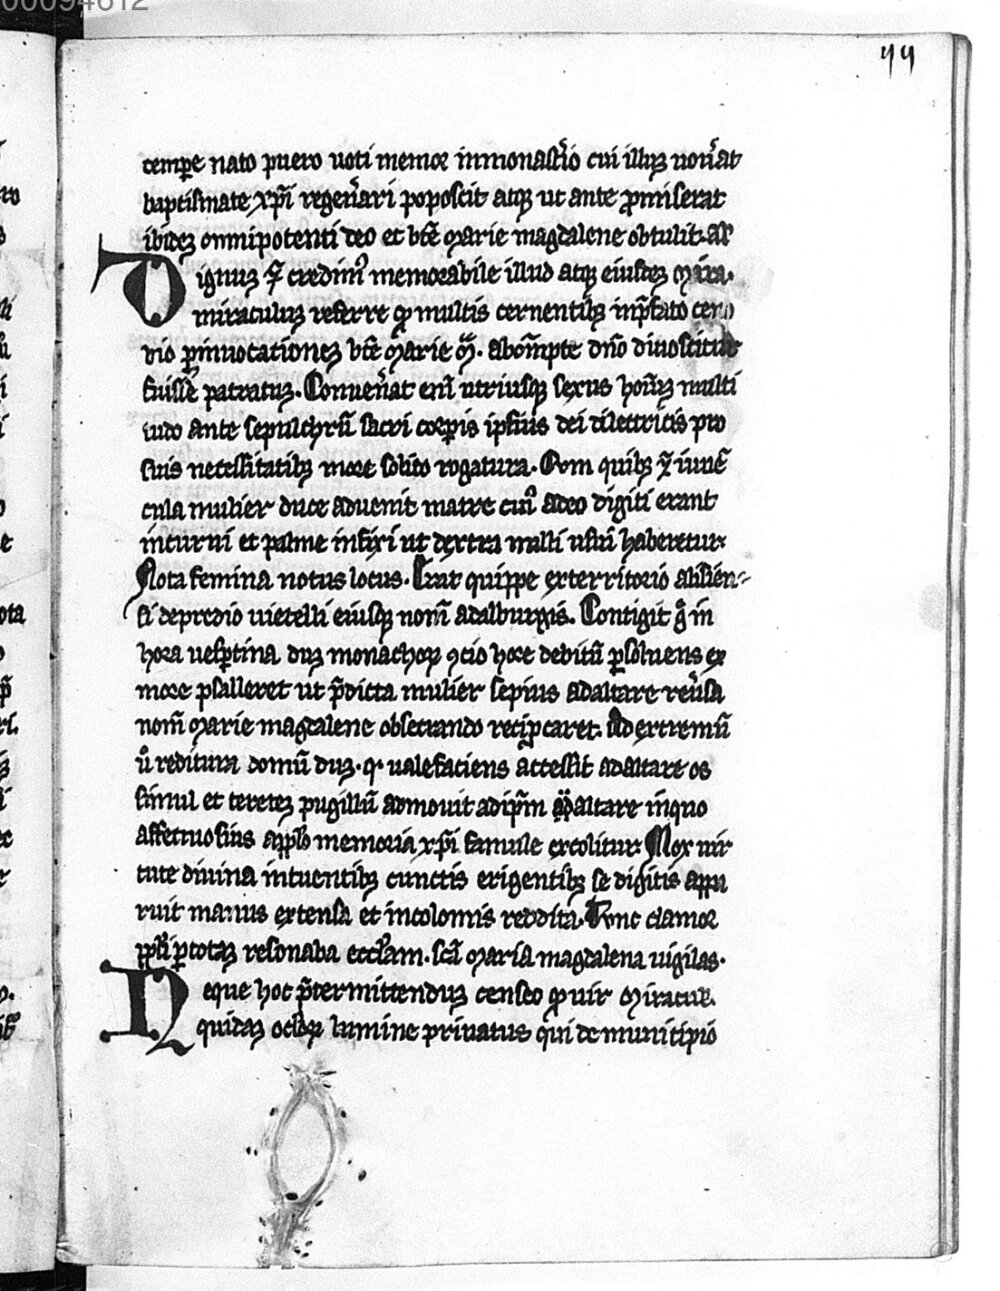 00094612
44
tempe nato puero uoti memor inmonast̾io cui illuꝫ uou̾at
baptismate xp̄i regen̾ari poposcit atqꝫ ut ante ꝓmiserat
ibideꝫ omnipotenti deo et bt̄e marie magdalene obtulit.
Dignuꝫ credim᷒ memorabile illud atqꝫ eiusdeꝫ
miraculuꝫ referre qd multis cernentibꝫ inp̄fato ceno
uio ꝑ inuocationeꝫ bt̄e marie m̄. abom̄ipt̄e dn̄o dinoscitur
fuisse patratuꝫ. Conuen̾at eni utriusqꝫ sexus hoīuꝫ multi
tudo ante sepulchrū sacri corꝑis ipsius dei dilectricis pro
suis necessitatibꝫ more solito rogatura. Cum quibꝫ iuuē
cula mulier duce aduenit matre cui᷒ adeo digiti erant
incurui et palme infixi ut dextra nulli usui haberetur.
Nota femina notus locus. Erat quippe exterritorio
si depredio uietelli eiusqꝫ nom̄ adalburgis. Contigit g̊ in
hora uesꝑtina duꝫ monachoꝝ ꝯcio hore debitū ꝑsoluens ex
more psalleret ut p̄dicta mulier sepius adaltare reu̾sa
nom̄ marie magdalene obsecrando reciprcaret. Ad extremū
u̾ reditura domū duꝫ. ualefaciens accessit adaltare os
simul et tereteꝫ pugillū admouit adip̄m altare inquo
affectuosius memoria xp̄i famule excolitur. Mox uir
tute diuina intuentibꝫ cunctis erigentibꝫ se digitis appa
ruit manus extensa et incolomis reddita. Tunc clamor
ppl̄i ꝑ totaꝫ resonaba eccl̄am. sc̄a maria magdalena uigilas.
Neque hoc p̄termittenduꝫ censeo uir
quidaꝫ oculoꝝ lumine priuatus qui de municipio